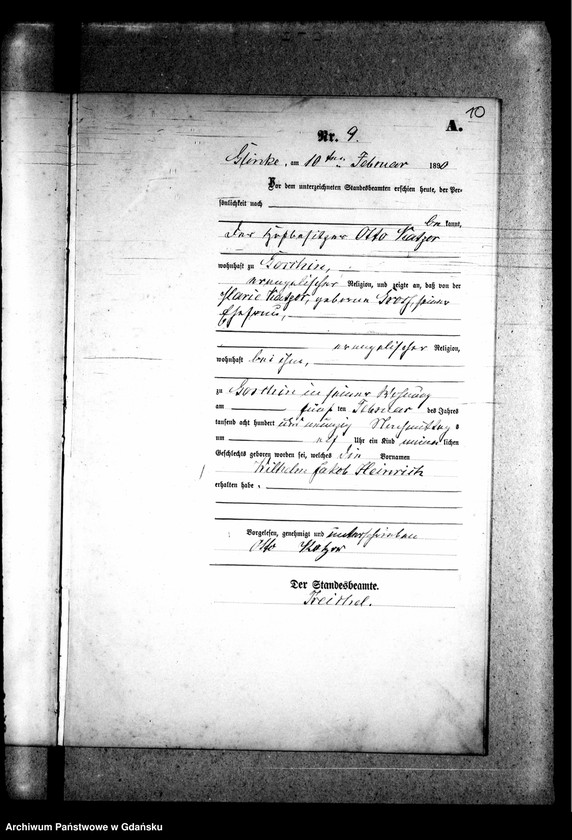 10
A.
Nr. 9.
am 10ten Februar 1890
Vor dem unterzeichneten Standesbeamten erschien heute, der Per-
sönlichkeit nach
be kannt,
der Hofbesitzer Otto Katzor
wohnhaft zu
evangelischer Religion, und zeigte an, daß von der
Marie Katzor, geborene seiner
Ehefrau,
evangelischer Religion,
wohnhaft bei ihm,
zu in seiner Wohnung
am fünften Februar des Jahres
tausend acht hundert und neunzig Nachmittag s
um Uhr ein Kind männ lichen
Geschlechts geboren worden sei, welches die Vornamen
Wilhelm Jakob Heinrich
erhalten habe.
Vorgelesen, genehmigt und unterschrieben
Otto Katzor
Der Standesbeamte.
Archiwum Państwowe w Gdańsku